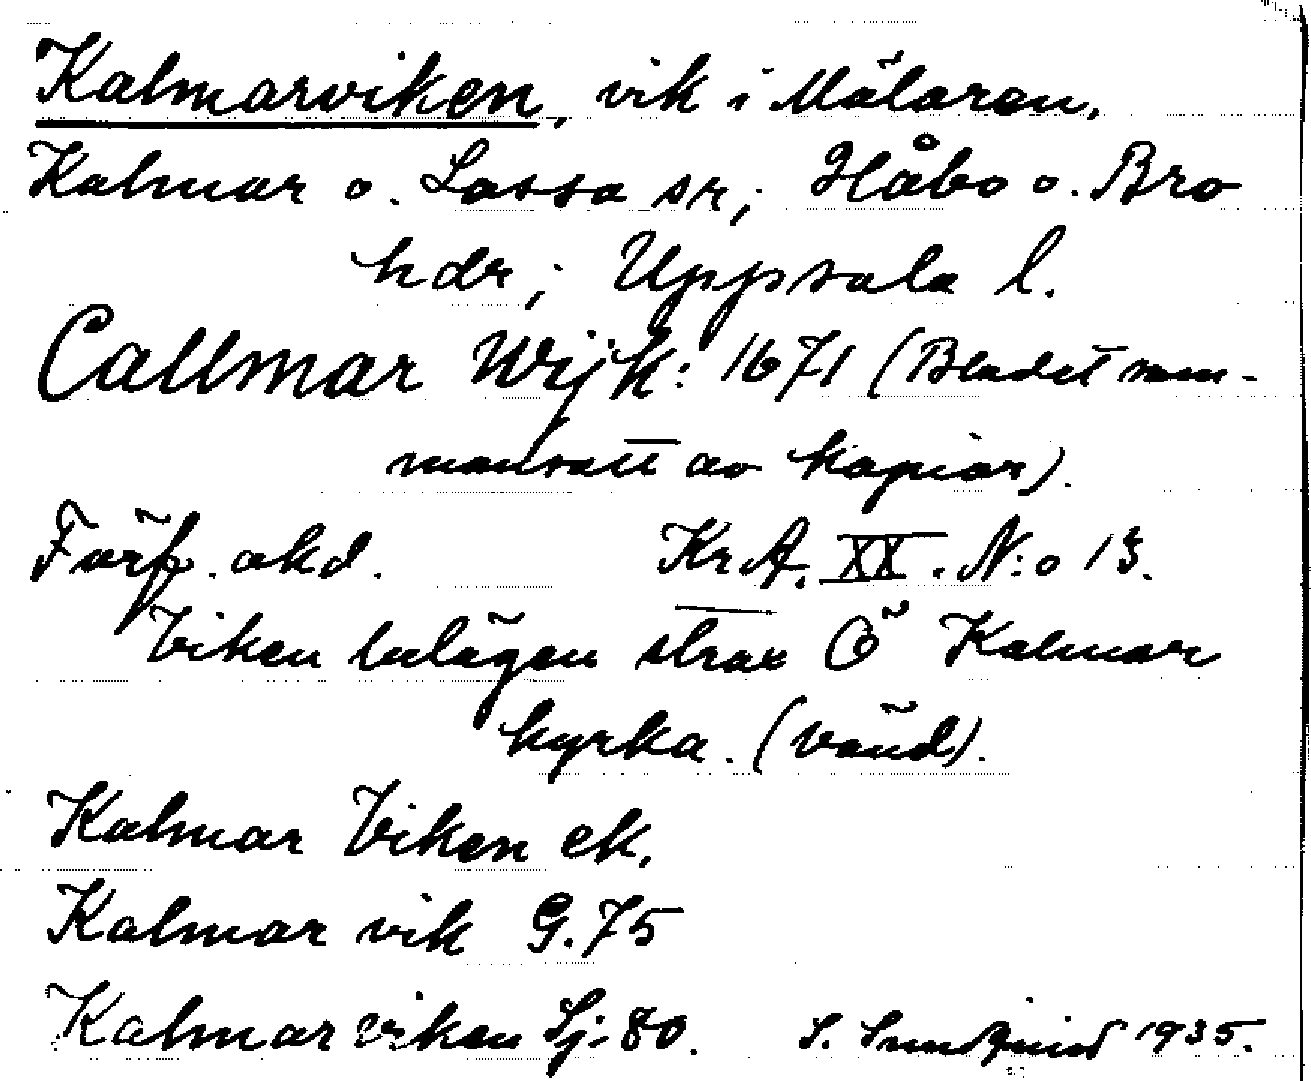 Kalmarviken, vik i Mälaren,
Kalmar o. Lossa sr; Håbo o. Bro
hdr; Uppsala l.
Callmar Wijk: 1671 (Bladet sam-
mansatt av kopior).
Förf. okd. KrA. XX. N:o 13.
Viken belägen strax Ö Kalmar
kyrka. (vänd).
Kalmar Viken ek.
Kalmar vik G. 75
Kalmarviken Sj. 80. S. Sundquist 1935.